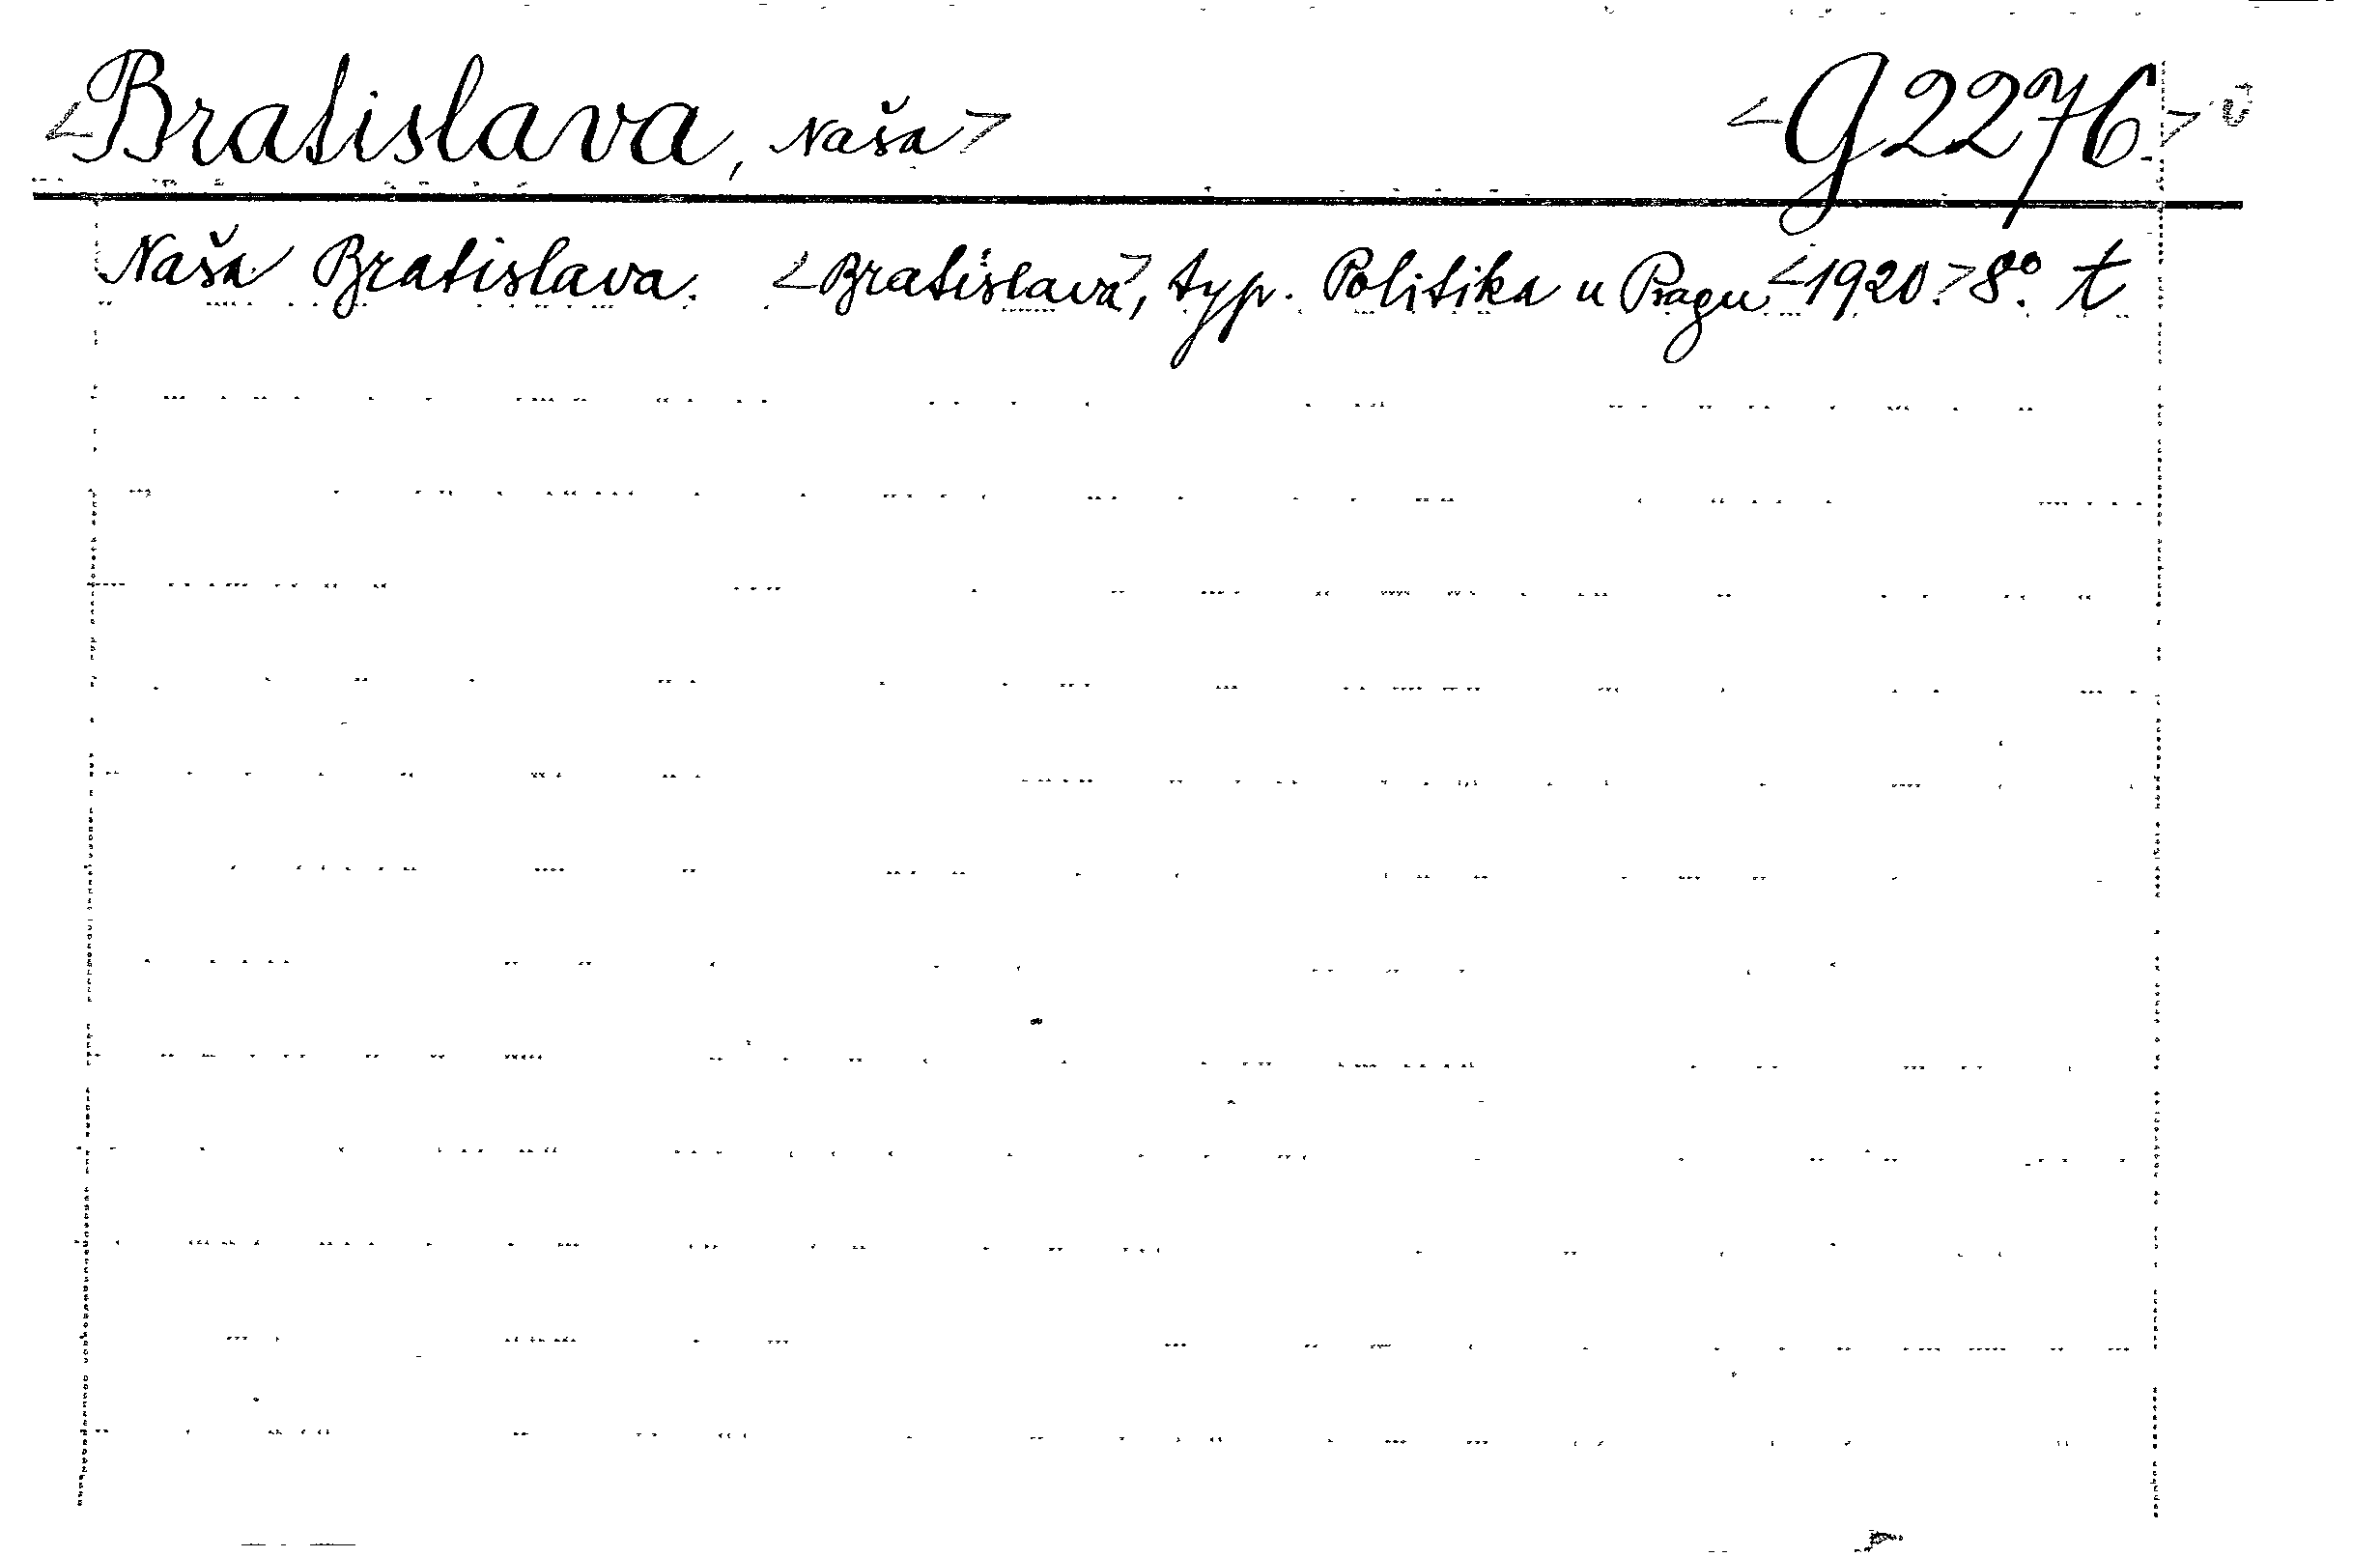 <Bratislava, Naša> <G2276>
Naša Bratislava. <Bratislava>, typ. Politika u Pragu <1920.> 8º. t